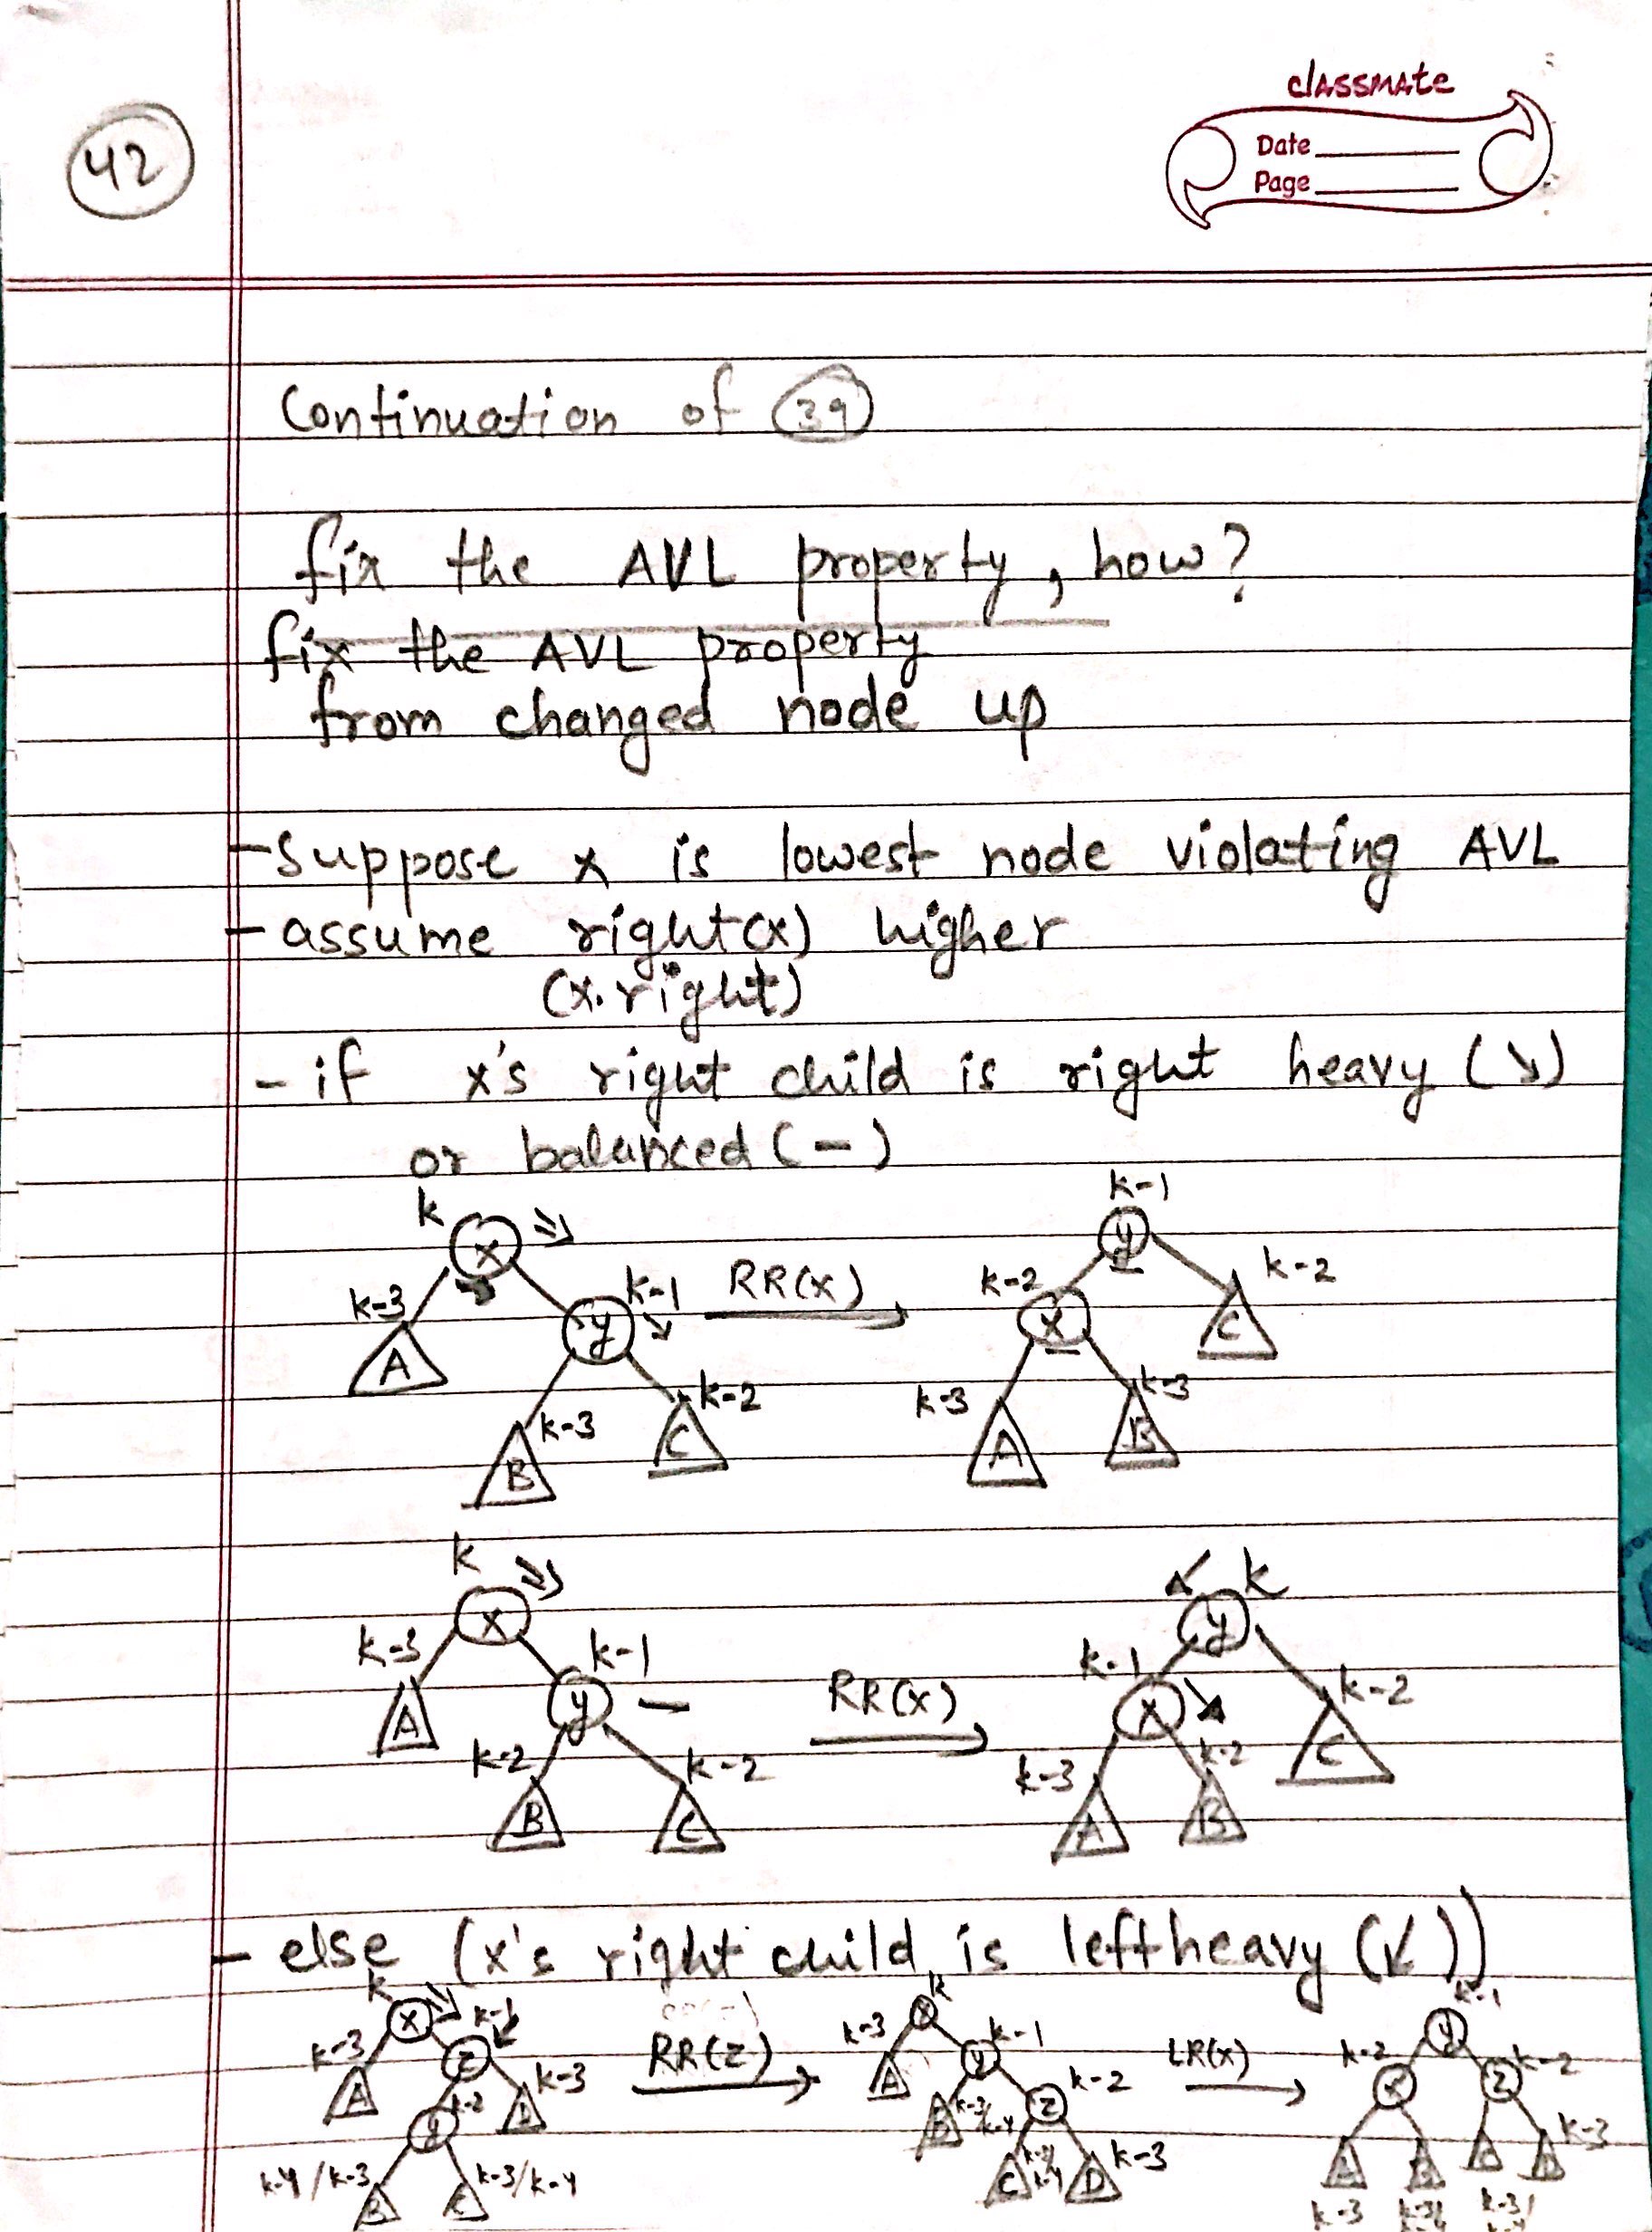 classmate
Date
Page
42
Continuation of 39
fix the AVL property, how?
fix the AVL property
from changed node up
- Suppose x is lowest node violating AVL
- assume right(x) higher
(x.right)
- if x's right child is right heavy (↘)
or balanced (-)
k x ↘↘
k-3 A
y k-1 ↘
B k-3
C k-2
RR(x)
k-1 y
k-2 x
k-2 C
k-3 A
k-3 B
k x ↘↘
k-3 A
k-1 y -
k-2 B
k-2 C
RR(x)
↙ k y
k-1 x ↘
k-2 C
k-3 A
k-2 B
- else (x's right child is left heavy (↙))
k x ↘↘
k-3 A
k-1 z ↙
k-2 y
k-3 D
k-4/k-3 B
k-3/k-4 C
RR(z)
k x
k-3 A
k-1 y
k-3/k-4 B
k-2 z
C
k-3 D
LR(x)
k-1 y
k-2 x
k-2 z
k-3
k-3